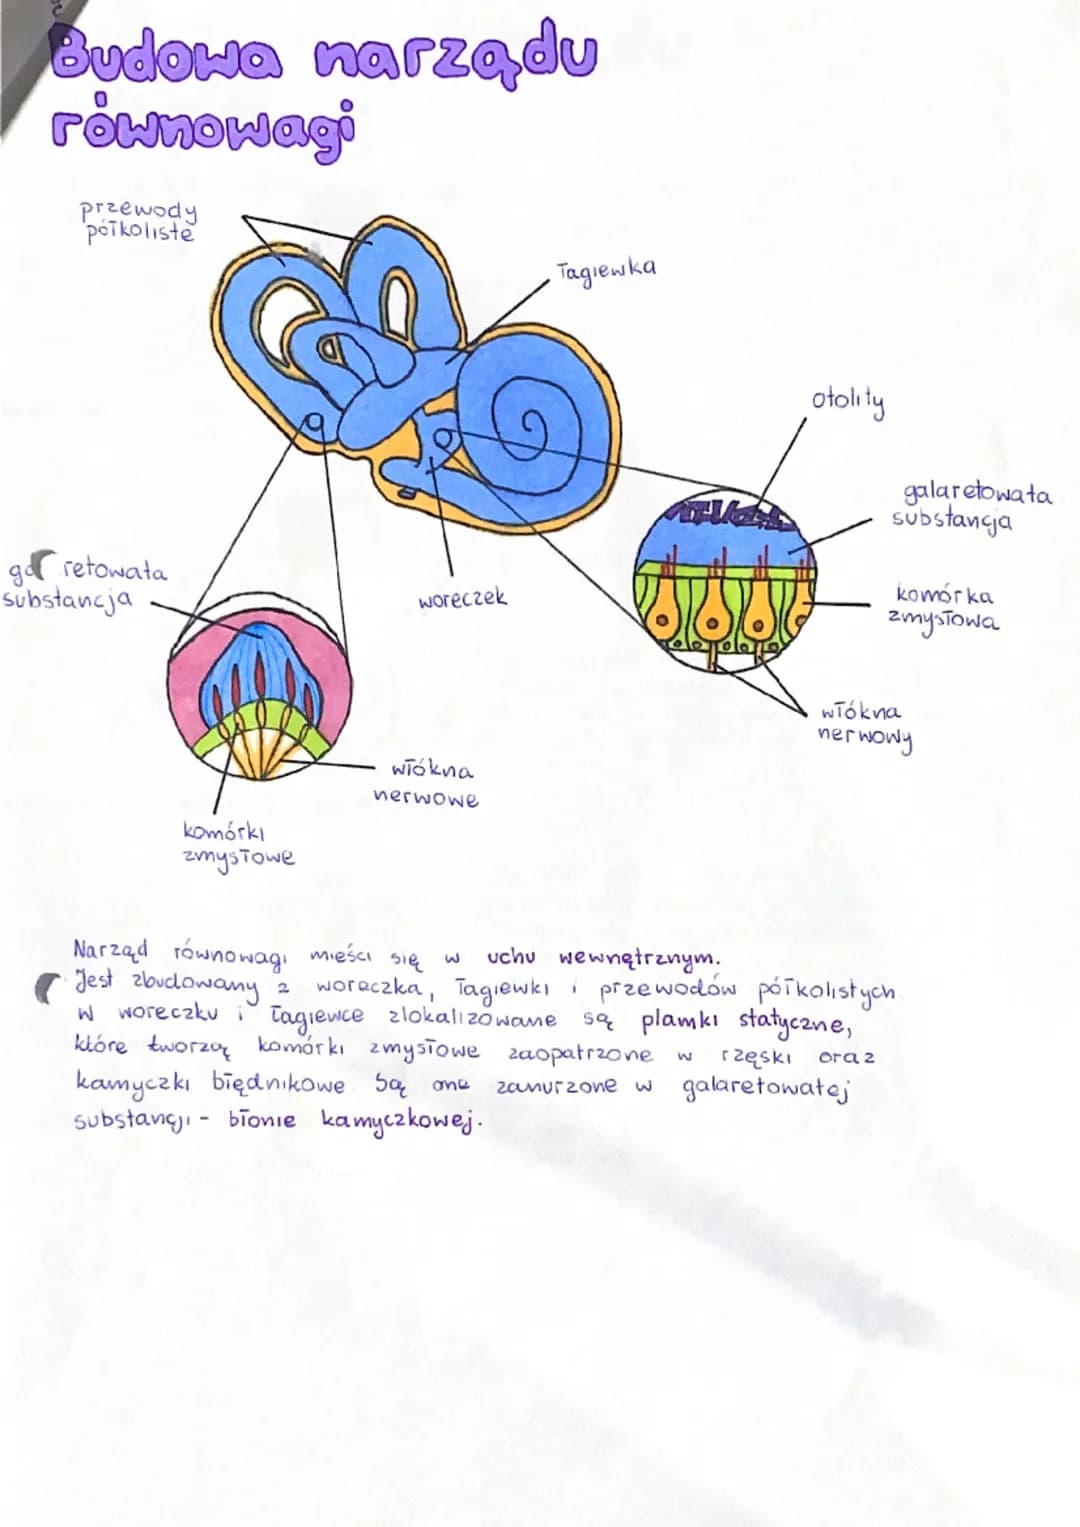 Budowa narządu
równowagi
przewody
półkoliste
łagiewka
otolity
galaretowata
substancja
retowata
substancja
woreczek
komórka
zmysłowa
włókna
nerwowy
włókna
nerwowe
komórki
zmysłowe
Narząd równowagi mieści się w uchu wewnętrznym.
Jest zbudowany z woreczka, łagiewki i przewodów półkolistych
w woreczku i łagiewce zlokalizowane są plamki statyczne,
które tworzą komórki zmysłowe zaopatrzone w rzęski oraz
kamyczki błędnikowe. Są one zanurzone w galaretowatej
substancji - błonie kamyczkowej.